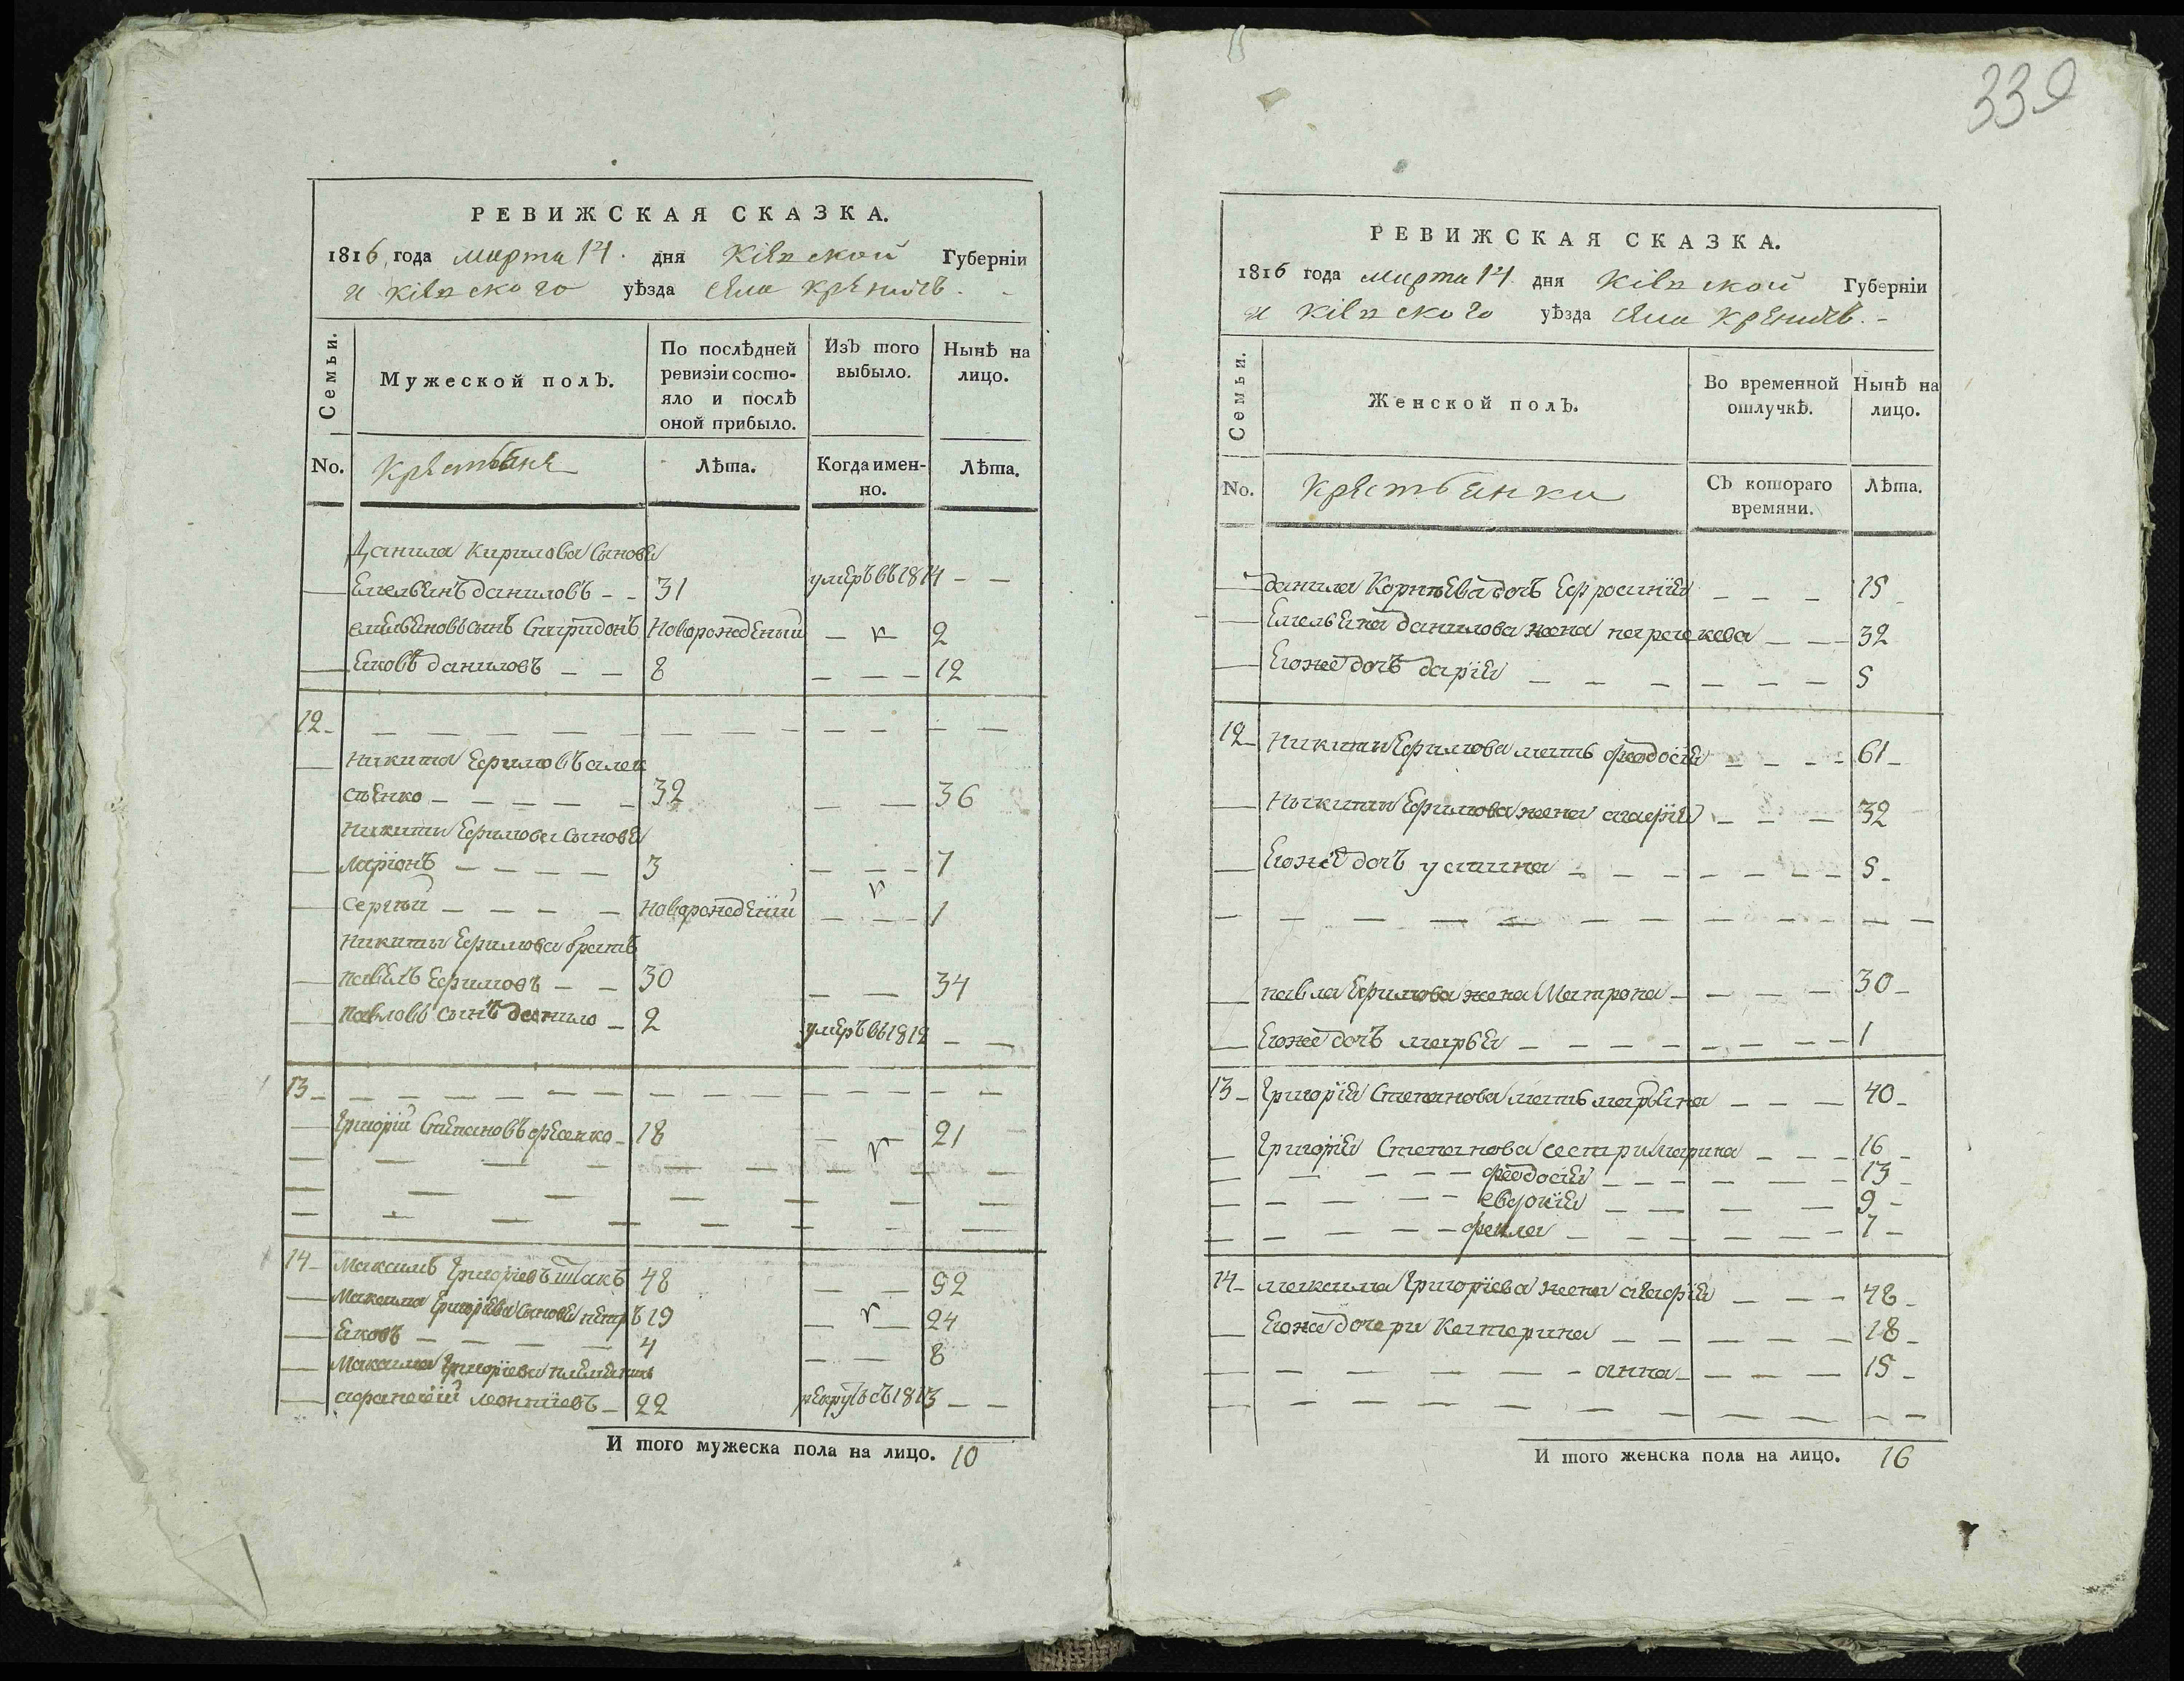 339
РЕВИЖСКАЯ СКАЗКА.
1816 года марта 14. дня Кіевской Губерніи
и Кіевского уѣзда Села Креничъ.
Семьи.
Мужеской полЪ.
По послѣдней ревизіи состояло и послѣ оной прибыло.
ИзЪ того выбыло.
НынѣЪ на лицо.
No.
Крестьяне
Лѣта.
Когда именно.
Лѣта.
Данила Кирилова Сыновя
Емельянъ даниловъ 31 умеръ въ 1814
емельяновъ сынъ Спиридонъ Новорожденый 2
Яковъ даниловъ 8 12
12
Никита Ефимовъ алек
сѣенко 32 36
Никиты Ефимова Сыновя
Ларіонъ 3 7
Сергѣй Новорожденій 1
Никиты Ефимова братъ
павелъ Ефимовъ 30 34
Павловъ сынъ данило 2 умеръ въ 1812
13
Григорій Степановъ 18 21
14 Максимъ Григоріевъ 48 52
Максима Григоріева Сыновя петръ 19 24
Яковъ 4 8
Максима Григоріева племяникъ
афанасій леонтіевъ 22 рекрутъ съ 1813
И того мужеска пола на лицо. 10
РЕВИЖСКАЯ СКАЗКА.
1816 года марта 14 дня Кіевской Губерніи
и Кіевского уѣзда Села Креничъ.
Семьи.
Женской полЪ.
Во временной отлучкѣ.
Нынѣ на лицо.
No.
Крестьянки
СЪ котораго времяни.
Лѣта.
данила Корнѣева дочъ Ефросинія 15
Емельяна данилова жена параскева 32
Егоже дочъ дарія 5
12 Никиты Ефимова мать феодосія 61
Никиты Ефимова жена 32
Егоже дочъ устина 5
павла Ефимова жена Матрона 30
Егоже дочъ марья 1
13 Григорія Степанова мать марьяна 40
Григорія Степанова сестри Марина 16
феодосія 13
евдокія 9
фекла 7
14 максима Григоріева жена 48
Егоже дочери Катерина 18
анна 15
И того женска пола на лицо. 16